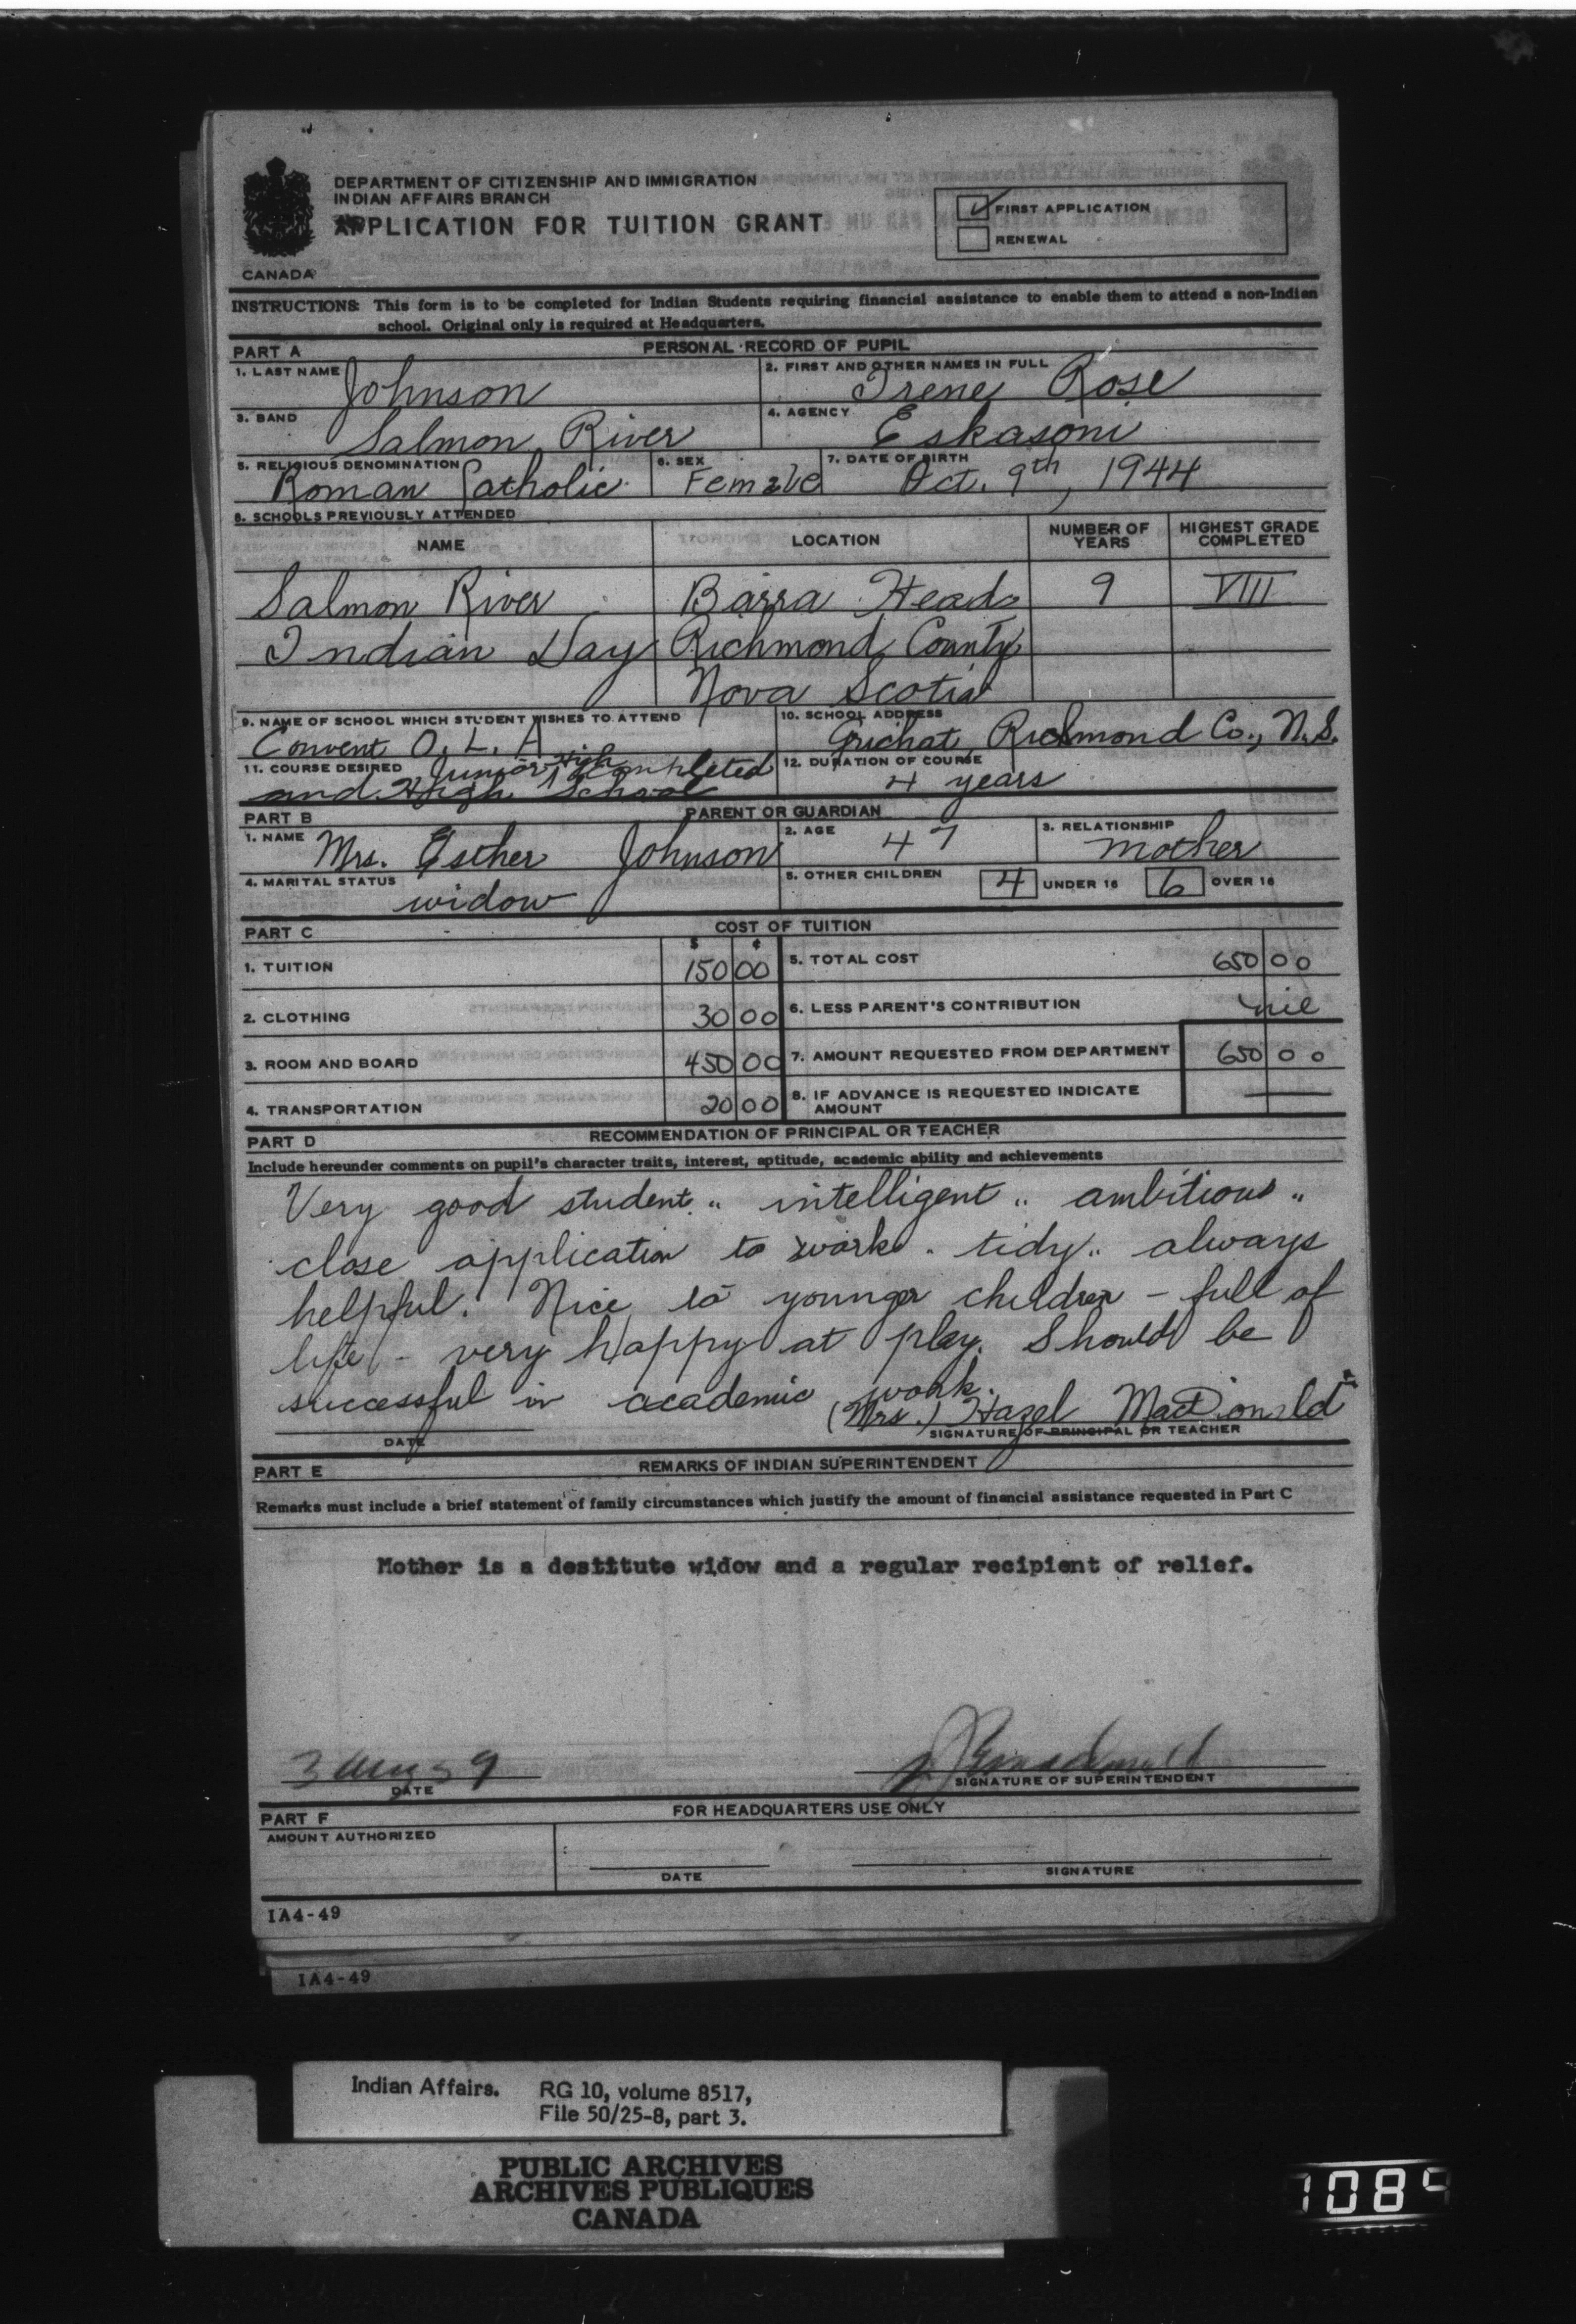 DEPARTMENT OF CITIZENSHIP AND IMMIGRATION
INDIAN AFFAIRS BRANCH
APPLICATION FOR TUITION GRANT
CANADA
✓ FIRST APPLICATION
RENEWAL
INSTRUCTIONS: This form is to be completed for Indian Students requiring financial assistance to enable them to attend a non-Indian
school. Original only is required at Headquarters.
PART A PERSONAL RECORD OF PUPIL
1. LAST NAME Johnson 2. FIRST AND OTHER NAMES IN FULL Irene Rose
3. BAND Salmon River 4. AGENCY Eskasoni
5. RELIGIOUS DENOMINATION Roman Catholic 6. SEX Female 7. DATE OF BIRTH Oct. 9th, 1944
8. SCHOOLS PREVIOUSLY ATTENDED
NAME LOCATION NUMBER OF YEARS HIGHEST GRADE COMPLETED
Salmon River Barra Head 9 VIII
Indian Day Richmond County
Nova Scotia
9. NAME OF SCHOOL WHICH STUDENT WISHES TO ATTEND 10. SCHOOL ADDRESS
Convent O. L. A Grichat, Richmond Co., N.S.
11. COURSE DESIRED Junior High completed 12. DURATION OF COURSE
and High School 4 years
PART B PARENT OR GUARDIAN
1. NAME Mrs. Esther Johnson 2. AGE 47 3. RELATIONSHIP mother
4. MARITAL STATUS widow 5. OTHER CHILDREN 4 UNDER 16 6 OVER 16
PART C COST OF TUITION
$ ¢
1. TUITION 150 00 5. TOTAL COST 650 00
2. CLOTHING 30 00 6. LESS PARENT'S CONTRIBUTION nil
3. ROOM AND BOARD 450 00 7. AMOUNT REQUESTED FROM DEPARTMENT 650 00
4. TRANSPORTATION 20 00 8. IF ADVANCE IS REQUESTED INDICATE AMOUNT
PART D RECOMMENDATION OF PRINCIPAL OR TEACHER
Include hereunder comments on pupil's character traits, interest, aptitude, academic ability and achievements
Very good student .. intelligent .. ambitious ..
close application to work . tidy .. always
helpful. Nice to younger children - full of
life - very happy at play. Should be
successful in academic work.
(Mrs.) Hazel MacDonald
DATE SIGNATURE OF PRINCIPAL OR TEACHER
PART E REMARKS OF INDIAN SUPERINTENDENT
Remarks must include a brief statement of family circumstances which justify the amount of financial assistance requested in Part C
Mother is a destitute widow and a regular recipient of relief.
3 Aug 59
DATE SIGNATURE OF SUPERINTENDENT
PART F FOR HEADQUARTERS USE ONLY
AMOUNT AUTHORIZED
DATE SIGNATURE
IA4-49
IA4-49
Indian Affairs. RG 10, volume 8517,
File 50/25-8, part 3.
PUBLIC ARCHIVES
ARCHIVES PUBLIQUES
CANADA
1084